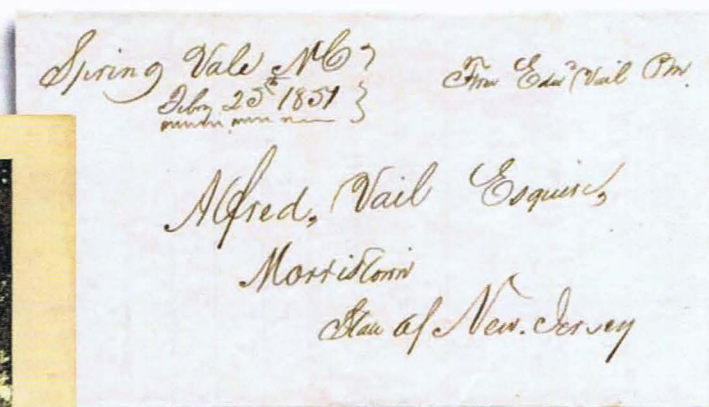 Spring Vale N C
Feby 25th 1851
From Edwd Vail PM.
Alfred, Vail Esquire,
Morristown
State of New. Jersey